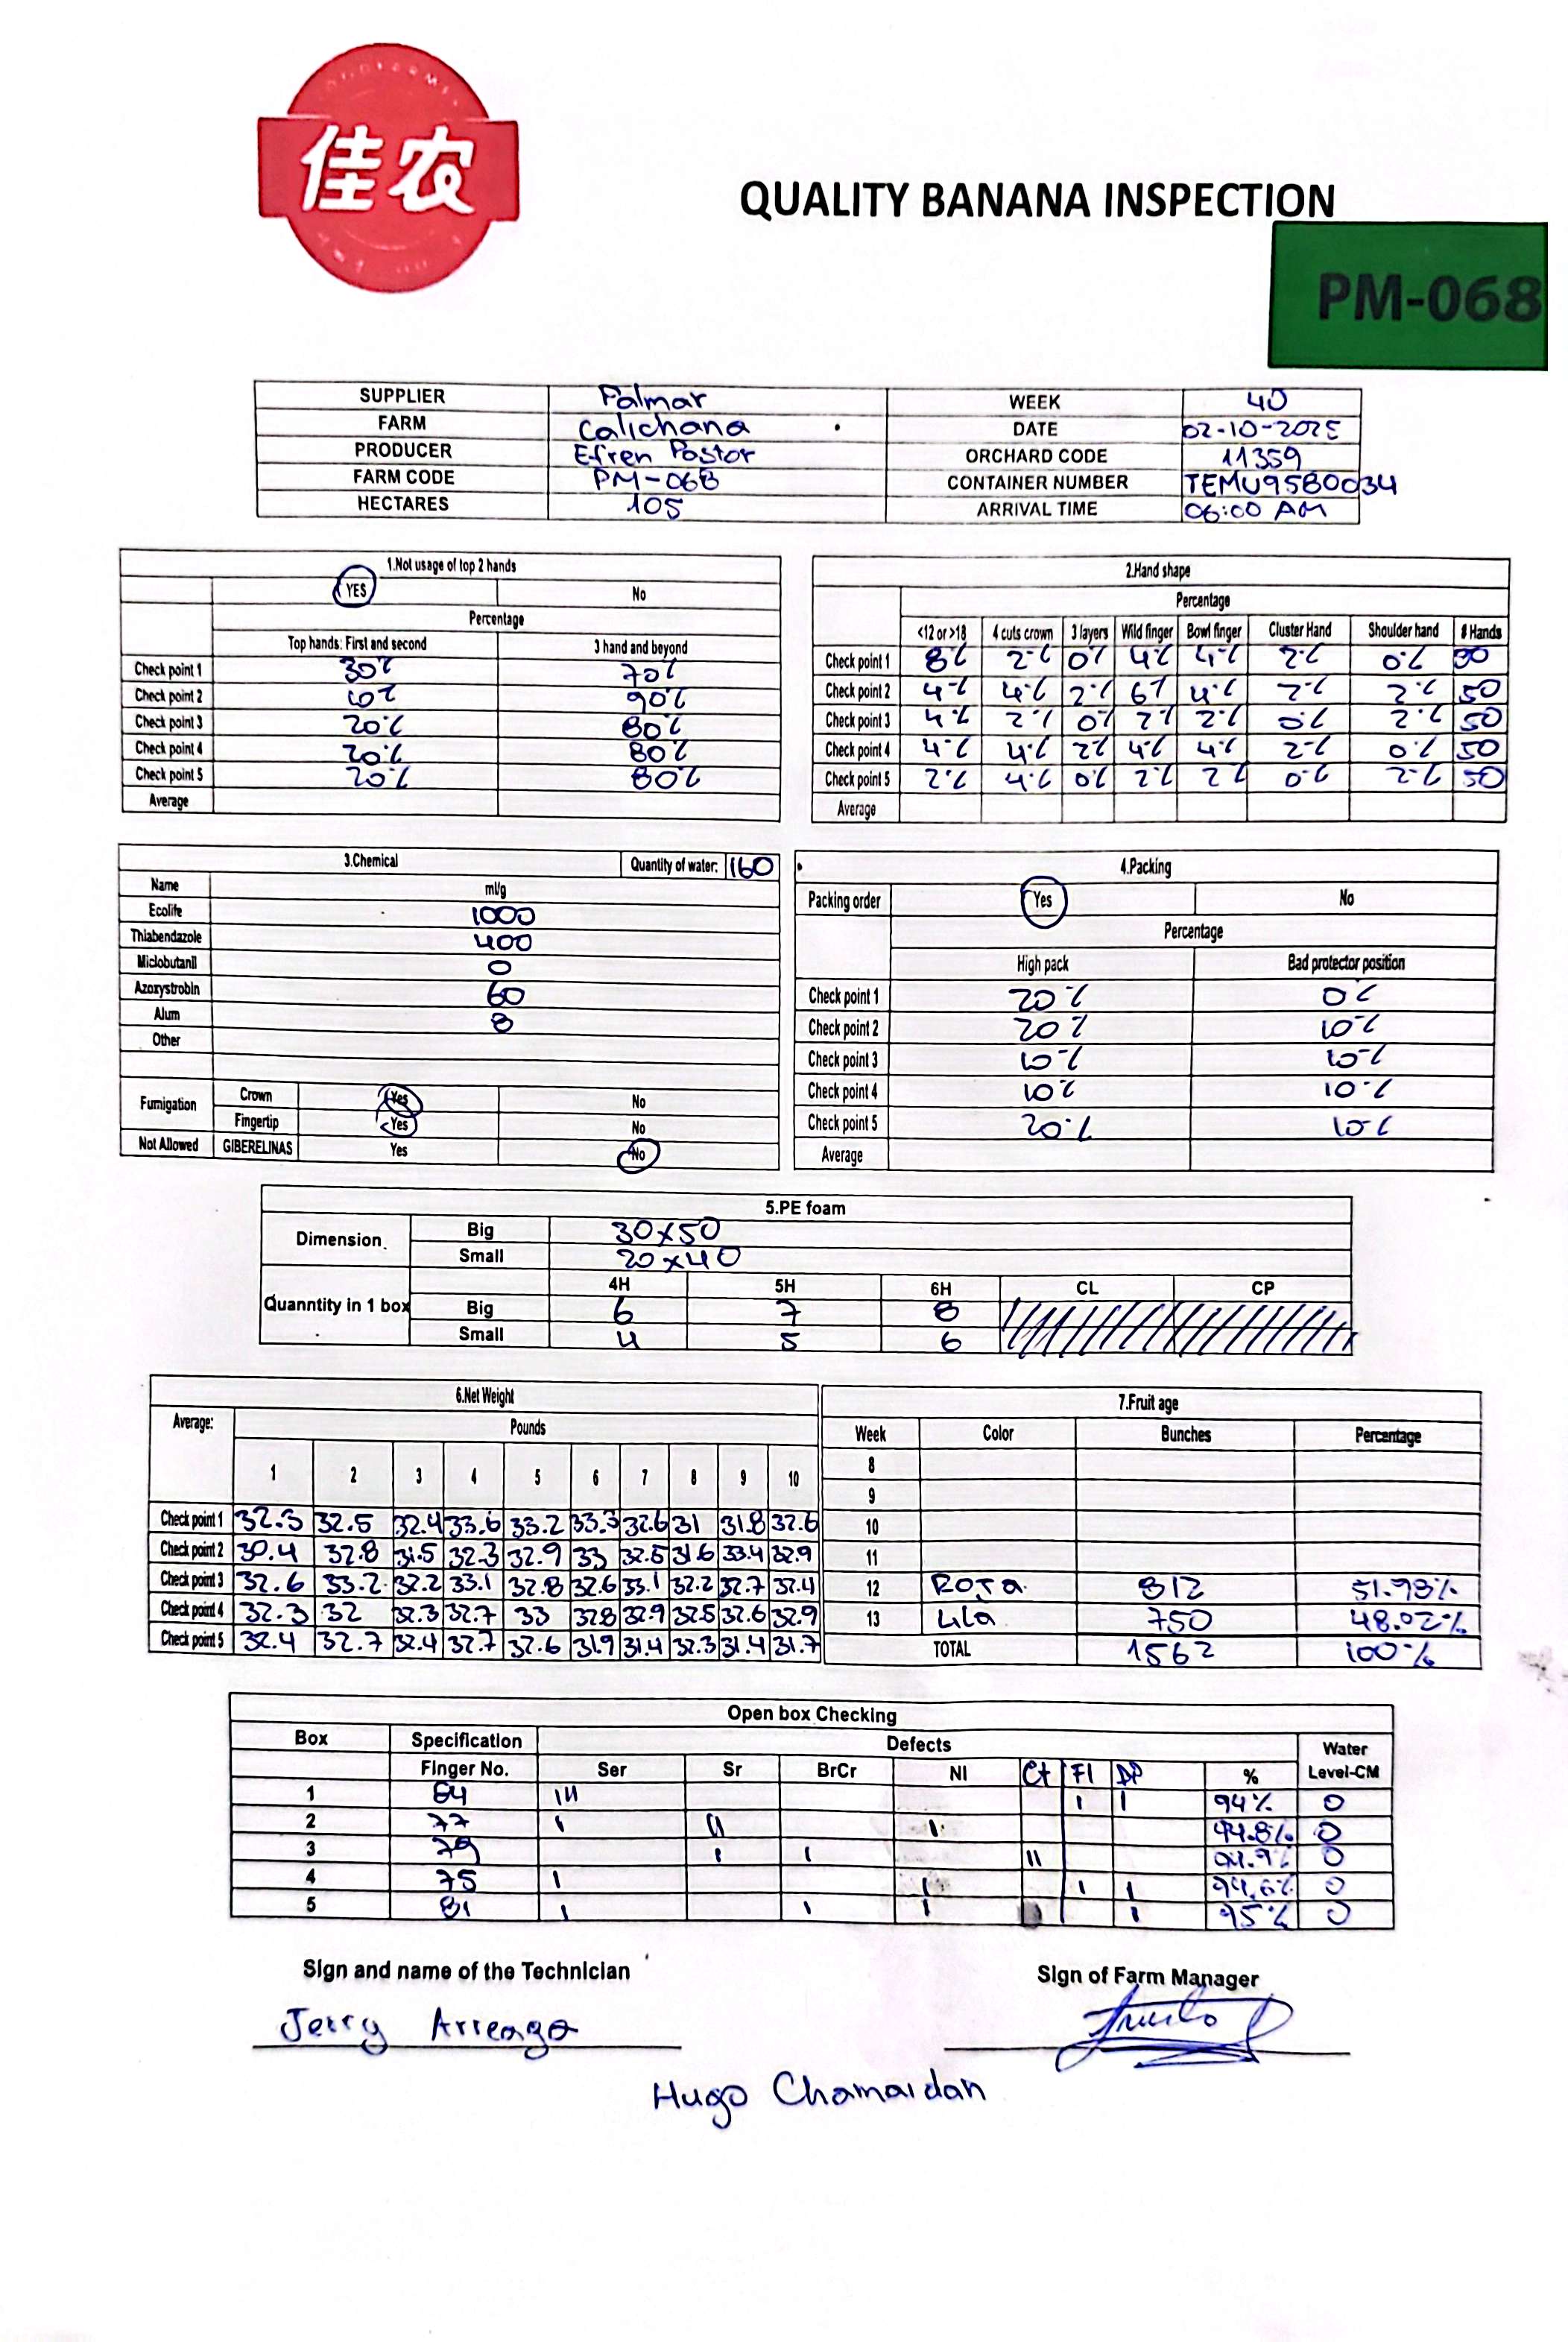 佳农
QUALITY BANANA INSPECTION
PM-068
SUPPLIER Palmar WEEK 40
FARM Calichana DATE 02-10-2025
PRODUCER Efren Pastor ORCHARD CODE 11359
FARM CODE PM-068 CONTAINER NUMBER TEMU9580034
HECTARES 105 ARRIVAL TIME 06:00 AM
1.Not usage of top 2 hands
YES No
Percentage
Top hands: First and second 3 hand and beyond
Check point 1 30% 70%
Check point 2 10% 90%
Check point 3 20% 80%
Check point 4 20% 80%
Check point 5 20% 80%
Average
2.Hand shape
Percentage
<12 or >18 4 cuts crown 3 layers Wild finger Bowl finger Cluster Hand Shoulder hand # Hands
Check point 1 8% 2% 0% 4% 4% 2% 0% 50
Check point 2 4% 4% 2% 6% 4% 2% 2% 50
Check point 3 4% 2% 0% 2% 2% 0% 2% 50
Check point 4 4% 4% 2% 4% 4% 2% 0% 50
Check point 5 2% 4% 0% 2% 2% 0% 2% 50
Average
3.Chemical Quantity of water: 160
Name ml/g
Ecolife 1000
Thiabendazole 400
Miclobutanil 0
Azoxystrobin 60
Alum 8
Other
Fumigation Crown Yes No
Fingertip Yes No
Not Allowed GIBERELINAS Yes No
4.Packing
Packing order Yes No
Percentage
High pack Bad protector position
Check point 1 20% 0%
Check point 2 20% 10%
Check point 3 10% 10%
Check point 4 10% 10%
Check point 5 20% 10%
Average
5.PE foam
Dimension Big 30x50
Small 20x40
4H 5H 6H CL CP
Quanntity in 1 box Big 6 7 8
Small 4 5 6
6.Net Weight
Average: Pounds
1 2 3 4 5 6 7 8 9 10
Check point 1 32.3 32.5 32.4 33.6 33.2 33.3 32.6 31 31.8 32.6
Check point 2 30.4 32.8 31.5 32.3 32.9 33 32.5 31.6 33.4 32.9
Check point 3 32.6 33.2 32.2 33.1 32.8 32.6 33.1 32.2 32.7 32.4
Check point 4 32.3 32 32.3 32.7 33 32.8 32.9 32.5 32.6 32.9
Check point 5 32.4 32.7 32.4 32.7 32.6 31.9 31.4 32.3 31.4 31.7
7.Fruit age
Week Color Bunches Percentage
8
9
10
11
12 Roja 812 51.98%
13 Lila 750 48.02%
TOTAL 1562 100%
Open box Checking
Box Specification Defects Water
Finger No. Ser Sr BrCr NI Ct FI DP % Level-CM
1 84 III I I 94% 0
2 77 I II I 94.8% 0
3 79 I I II 94.9% 0
4 75 I I I I 94.6% 0
5 81 I I I I 95% 0
Sign and name of the Technician Sign of Farm Manager
Jerry Arreaga
Hugo Chamaidan